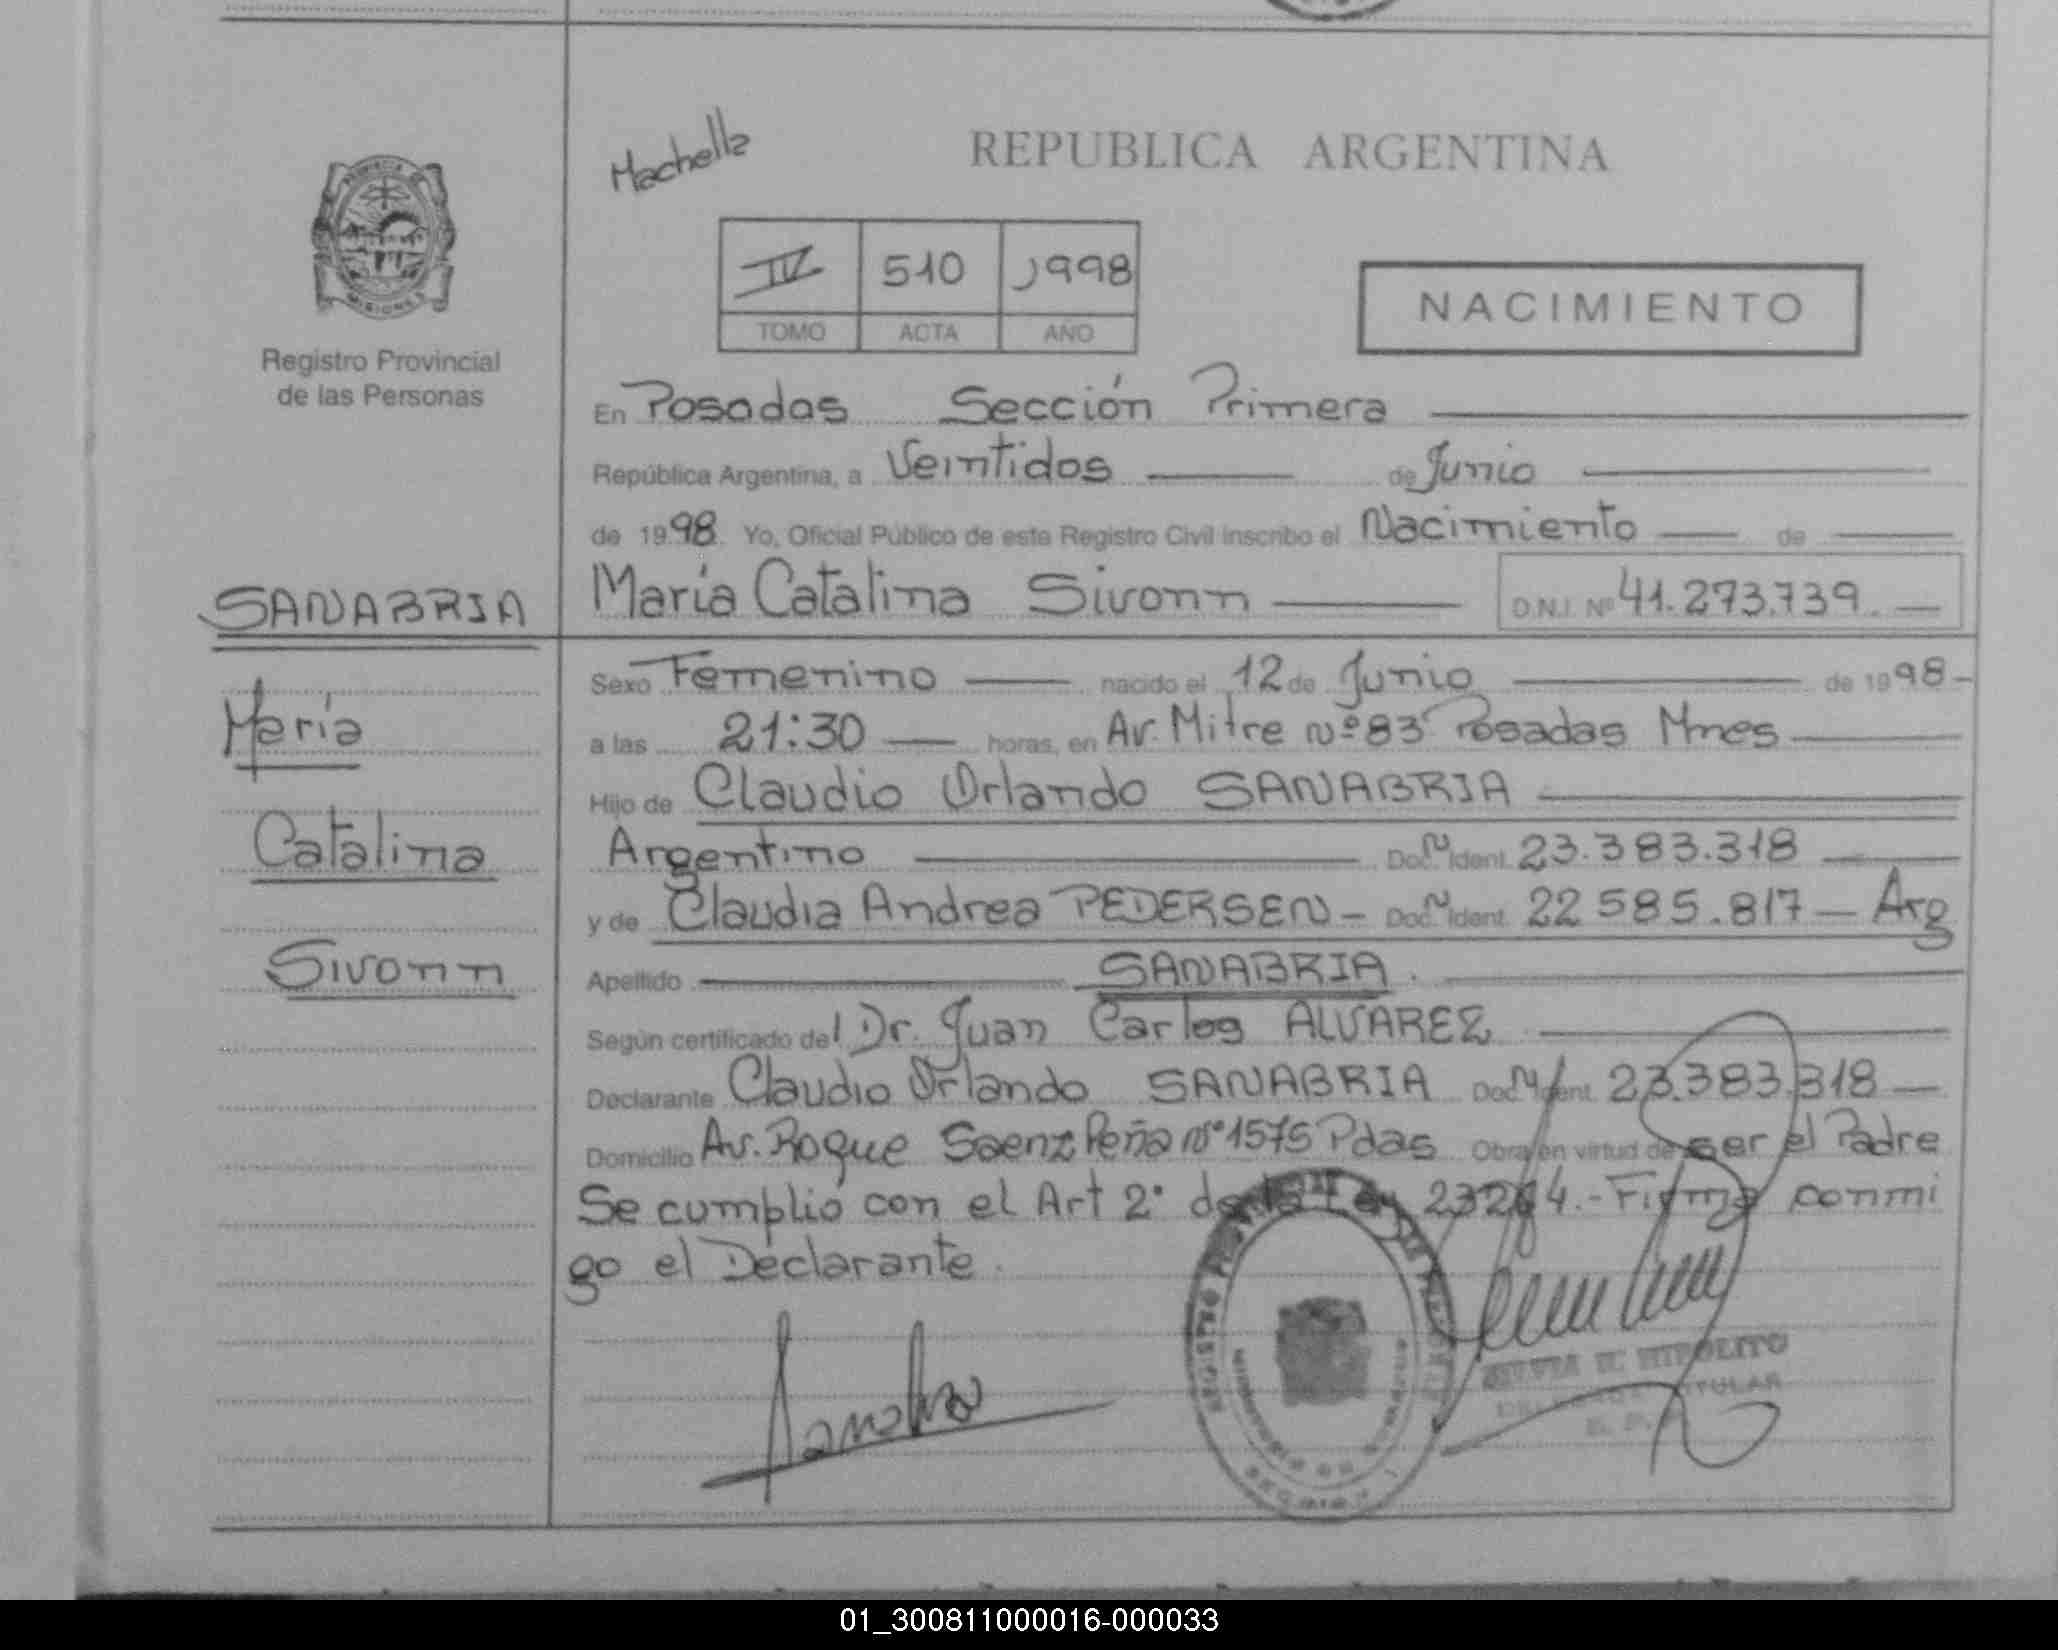 Machella
REPUBLICA ARGENTINA
IV 510 1998
TOMO ACTA AÑO
NACIMIENTO
PROVINCIA DE
MISIONES
Registro Provincial
de las Personas
En Posadas Sección Primera
República Argentina, a Veintidos de Junio
de 1998 Yo, Oficial Público de este Registro Civil inscribo el Nacimiento de
María Catalina Sivonn D.N.I. Nº 41.273.739.
SANABRIA
María
Catalina
Sivonn
Sexo Femenino nacido el 12 de Junio de 1998-
a las 21:30 horas, en Av. Mitre nº 83 Posadas Mnes
Hijo de Claudio Orlando SANABRIA
Argentino Doc. N Ident. 23.383.318
y de Claudia Andrea PEDERSEN - Doc. N Ident. 22 585.817 - Arg
Apellido SANABRIA.
Según certificado del Dr. Juan Carlos ALVAREZ
Declarante Claudio Orlando SANABRIA Doc. N Ident. 23.383.318
Domicilio Av. Roque Saenz Peña nº 1575 Pdas Obra en virtud de ser el Padre
Se cumplió con el Art 2° de la Ley 23264.- Firma conmi
go el Declarante.
HIPOLITO
TITULAR
01_300811000016-000033